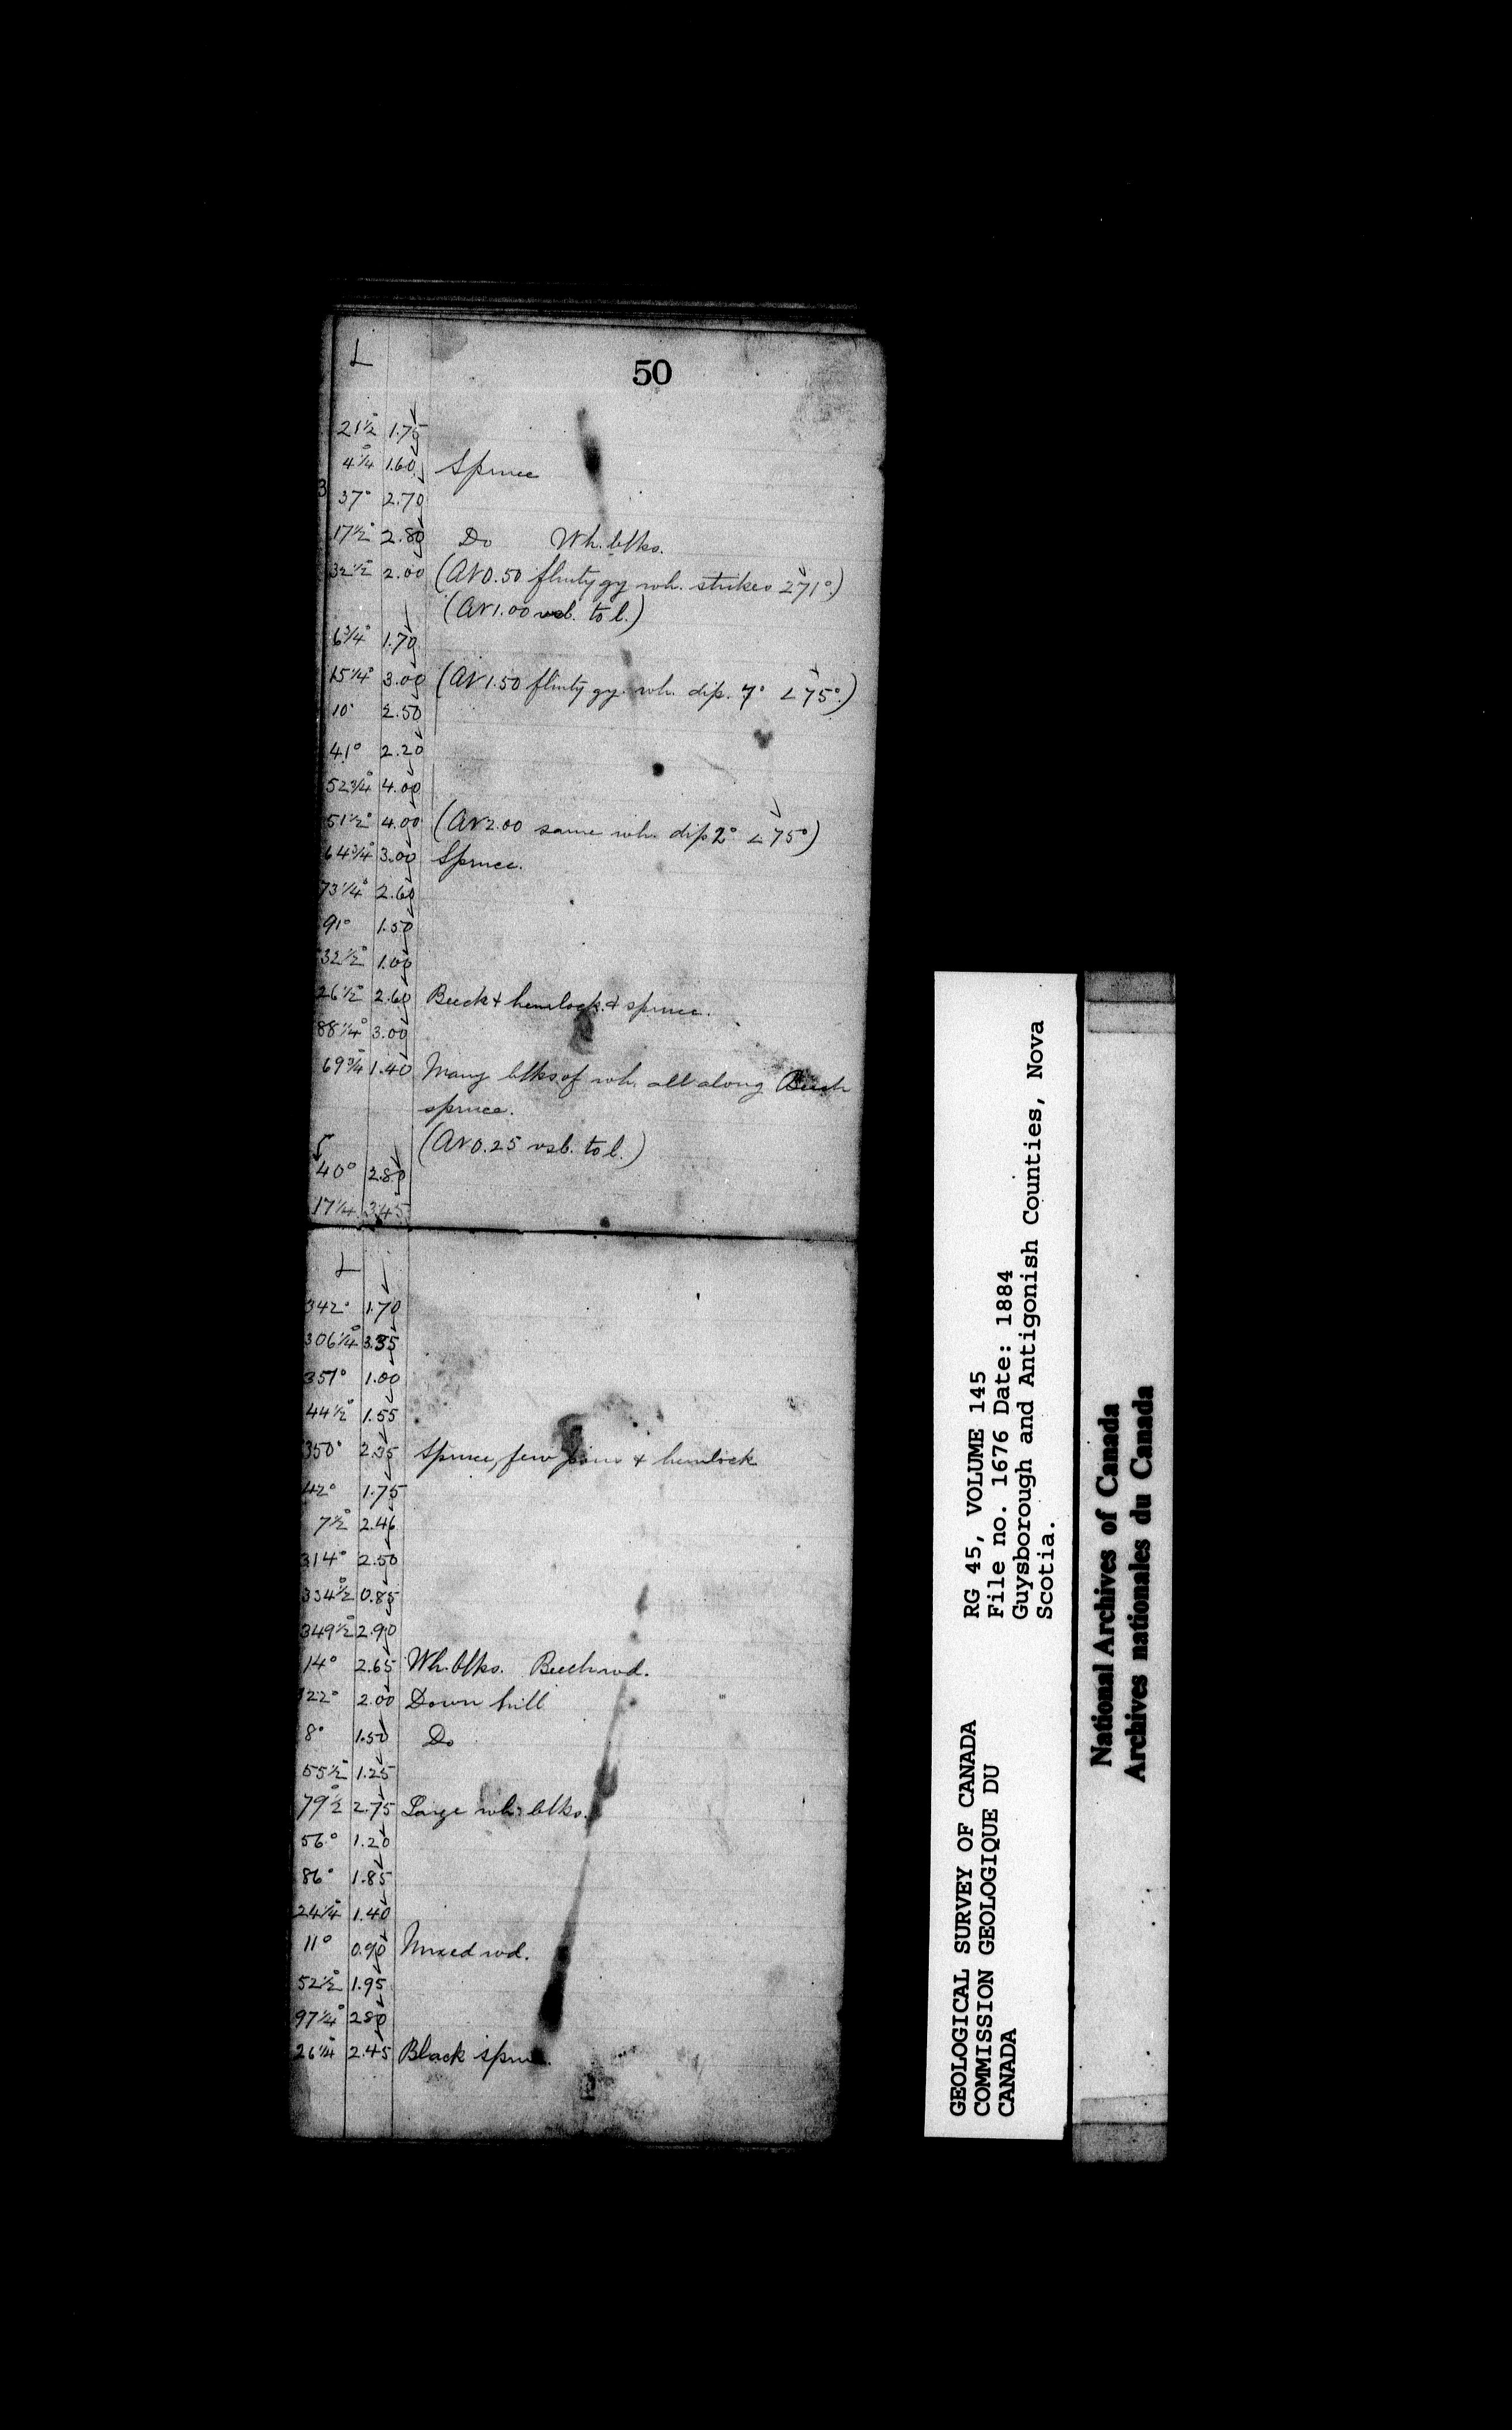 50
L
21½° 1.75
4¼° 1.60 Spruce
37° 2.70
17½° 2.80 Do Wh. blks.
32½° 2.00 (At 0.50 flinty gy wh. strikes 271°.)
(At 1.00 vsb. to l.)
6¾° 1.70
15¼° 3.00 (At 1.50 flinty gy. wh. dip. 7° ∠75°.)
10° 2.50
41° 2.20
52¾° 4.00
51½° 4.00 (At 2.00 same wh. dip 2° ∠75°)
64¾° 3.00 Spruce.
73¼° 2.60
91° 1.50
32½° 1.00
26½° 2.60 Beech & hemlock & spruce.
88¼° 3.00
69¾° 1.40 Many blks of wh. all along Beech
spruce.
(At 0.25 vsb. to l.)
40° 2.80
17¼ 2.45
L
342° 1.70
306¼° 3.35
351° 1.00
44½° 1.55
350° 2.35 Spruce, few pines & hemlock
42° 1.75
7½° 2.46
314° 2.50
334½° 0.85
349½° 2.90
14° 2.65 Wh. blks. Beech wd.
322° 2.00 Down hill
8° 1.50 Do
55½° 1.25
79½° 2.75 Large wh. blks.
56° 1.20
86° 1.85
24¼° 1.40
11° 0.90 Mixed wd.
52½° 1.95
97¼° 2.80
26¼° 2.45 Black spruce.
GEOLOGICAL SURVEY OF CANADA
COMMISSION GEOLOGIQUE DU
CANADA
RG 45, VOLUME 145
File no. 1676 Date: 1884
Guysborough and Antigonish Counties, Nova
Scotia.
National Archives of Canada
Archives nationales du Canada